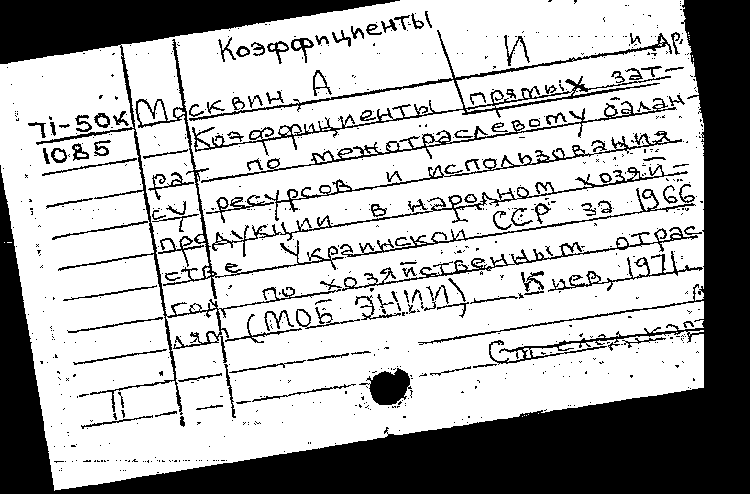 Коэффициенты
Москвин, А И и др
71-50к
1085
Коэффициенты прямых зат-
рат по межотраслевому балан-
су ресурсов и использования
продукции в народном хозяй-
стве Украинской ССР за 1966
год по хозяйственным отрас
лям (МОБ ЭНИИ). Киев, 1971.
См. след. кар
II